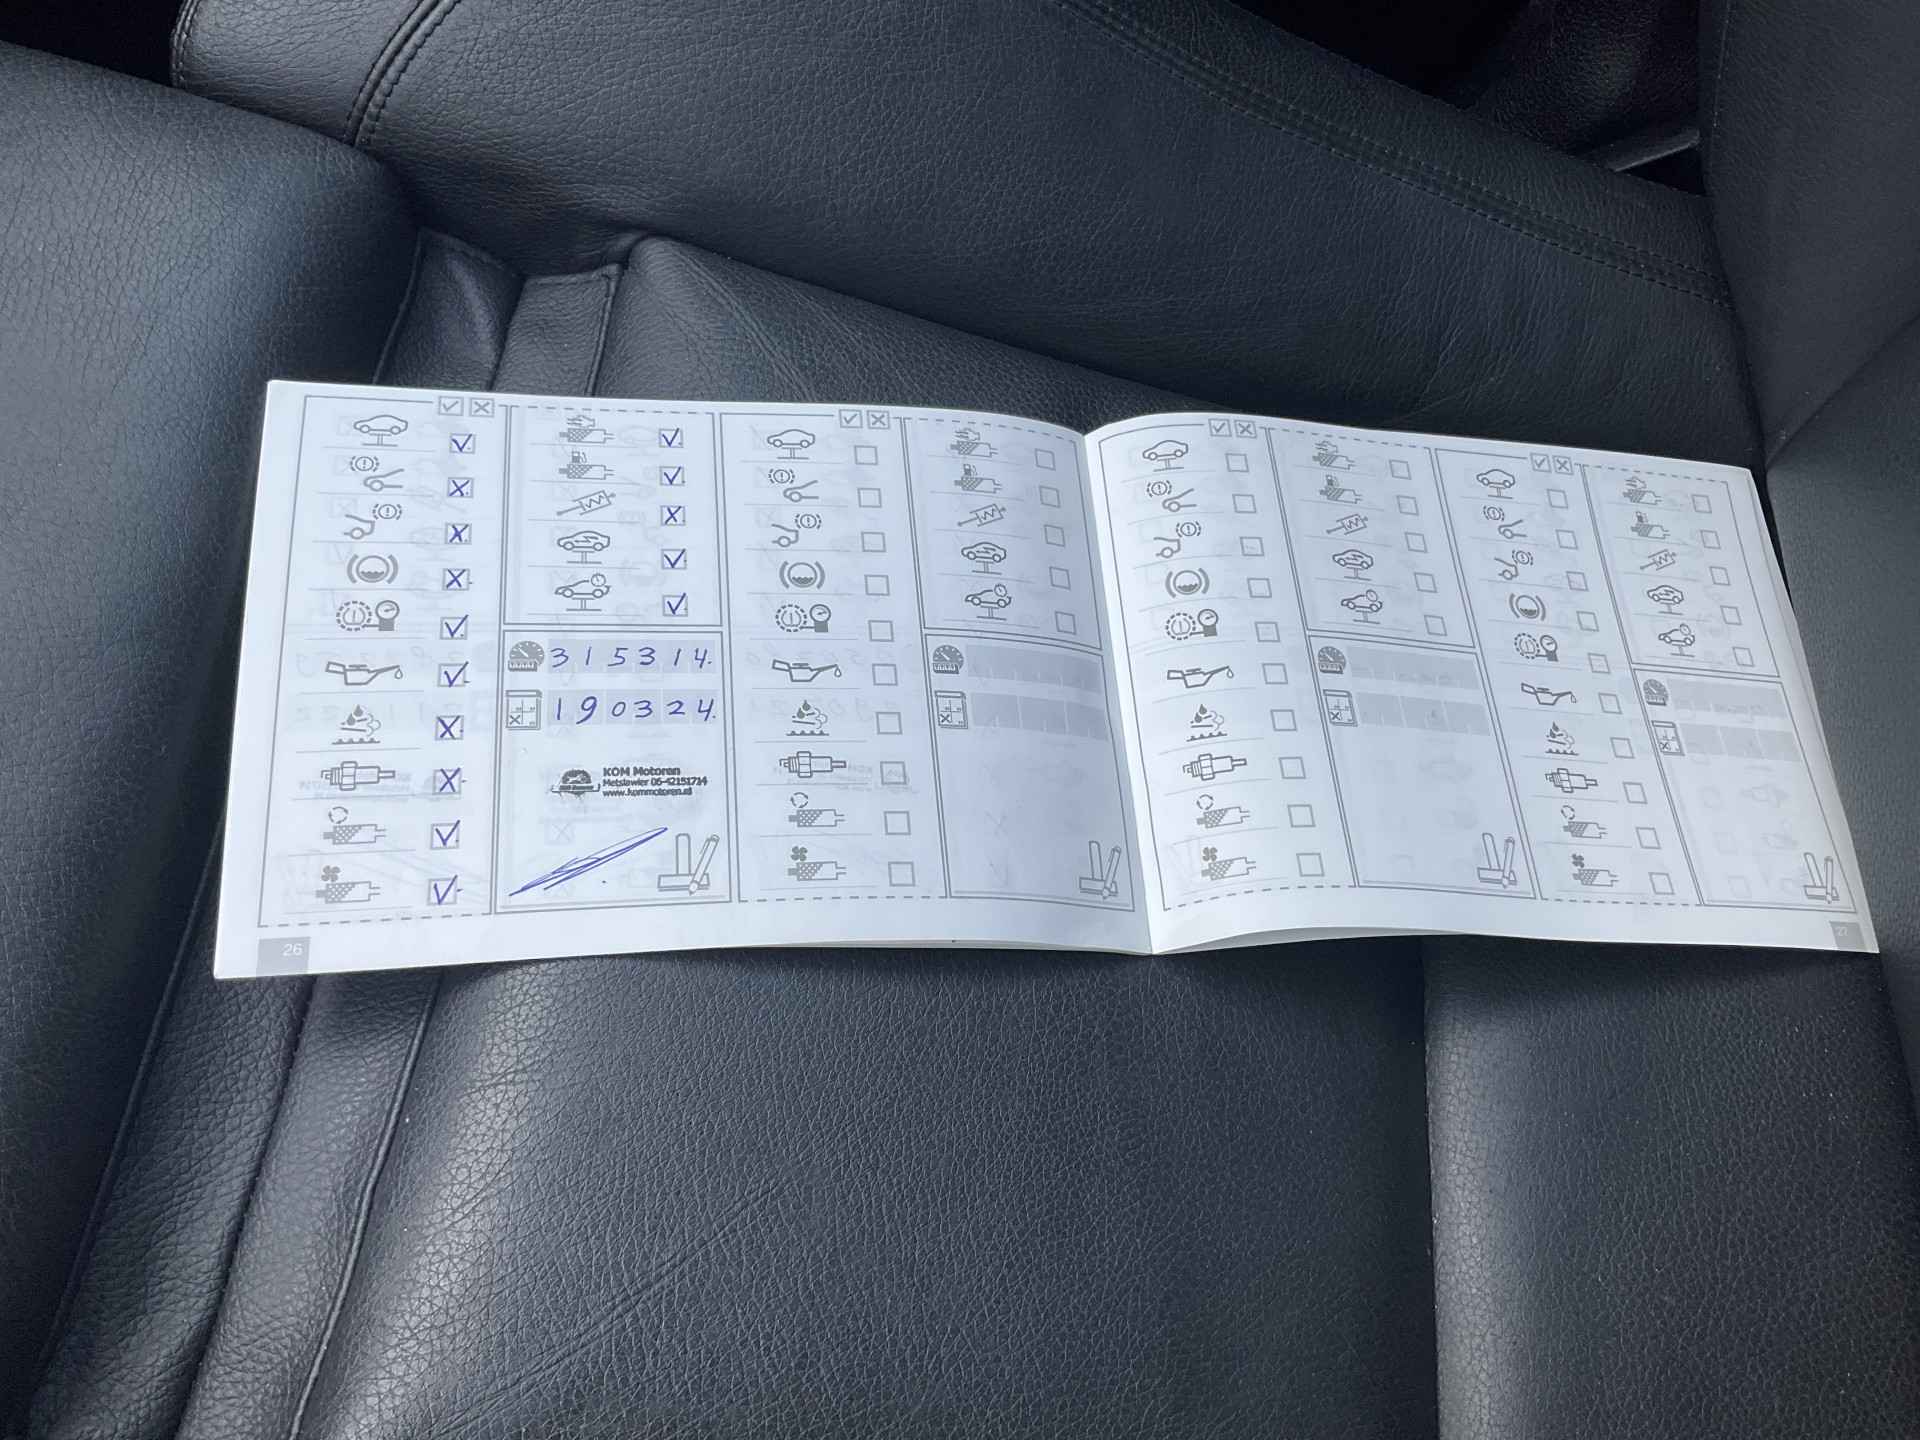 315314.
190324.
KOM Motoren
Metslawier 06-42151714
www.kommotoren.nl
26
27